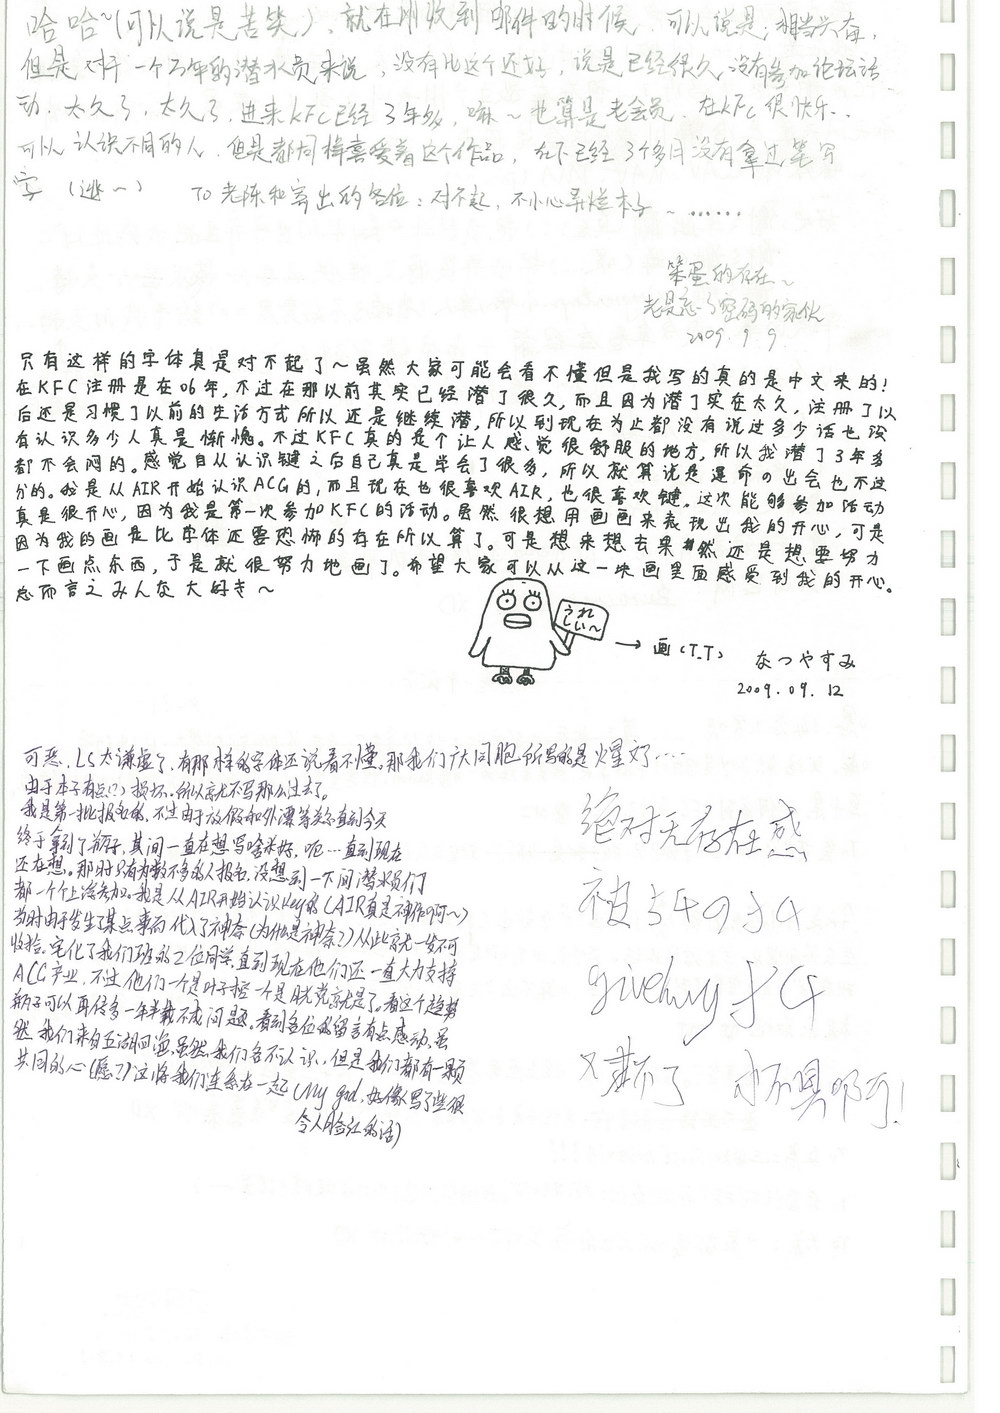 哈哈~(可以说是苦笑)，就在刚收到邮件的时候，可以说是；相当兴奋，
但是对于一个万年的潜水员来说，没有比这个还好，说是已经很久没有参加论坛活
动，太久了，太久了，进来KFC已经3年多，嘛~也算是老会员，在KFC很快乐..
可以认识不同的人，但是都同样喜爱着这个作品，在下已经3个多月没有拿过笔写
字 (逃~) TO 老陈和寄出的各位：对不起，不小心弄烂本子~......
笨蛋的存在~
老是忘了密码的家伙
2009.9.9.
只有这样的字体真是对不起了~虽然大家可能会看不懂但是我写的真的是中文来的!
在KFC注册是在06年，不过在那以前其实已经潜了很久，而且因为潜了实在太久，注册了以
后还是习惯了以前的生活方式所以还是继续潜，所以到现在为止都没有说过多少话也没
有认识多少人真是惭愧。不过KFC真的是个让人感觉很舒服的地方，所以我潜了3年多
都不会闷的。感觉自从认识键之后自己真是学会了很多，所以就算说是運命の出会也不过
分的。我是从AIR开始认识ACG的，而且现在也很喜欢AIR，也很喜欢键。这次能够参加活动
真是很开心，因为我是第一次参加KFC的活动。虽然很想用画画来表现出我的开心，可是
因为我的画是比字体还要恐怖的存在所以算了。可是想来想去果然还是想要努力
一下画点东西，于是就很努力地画了。希望大家可以从这一块画里面感受到我的开心。
总而言之みんな大好き~
うれ
しい~
→ 画(T_T)
なつやすみ
2009.09.12
可恶，LS太谦虚了，有那样的字体还说看不懂，那我们广大同胞所写的是火星文……
由于本子有点(?)损坏，所以就不写那么过去了。
我是第一批报名的，不过由于放假和外漂等关系直到今天
终于拿到了本子，其间一直在想写啥来好，呃…一直到现在
还在想，那时只有为数不多的人报名，没想到一下间潜水员们
都一个个上浮参加。我是从AIR开始认识key的(AIR真是神作啊~)
当时由于发生了某点事而代入了神奈(为什么是神奈?)从此就一发不可
收拾，宅化了我们班的2位同学，直到现在他们还一直大力支持
ACG产业，不过他们一个是叶子控一个是月党就是了。看这个趋势
本子可以再传多一年半载不成问题。看到各位的留言有点感动，虽
然，我们来自五湖四海，虽然，我们各不认识，但是我们都有一颗
共同的心(愿?)这将我们连系在一起(My god，好像写了些很
令人脸红的话)
绝对无存在感